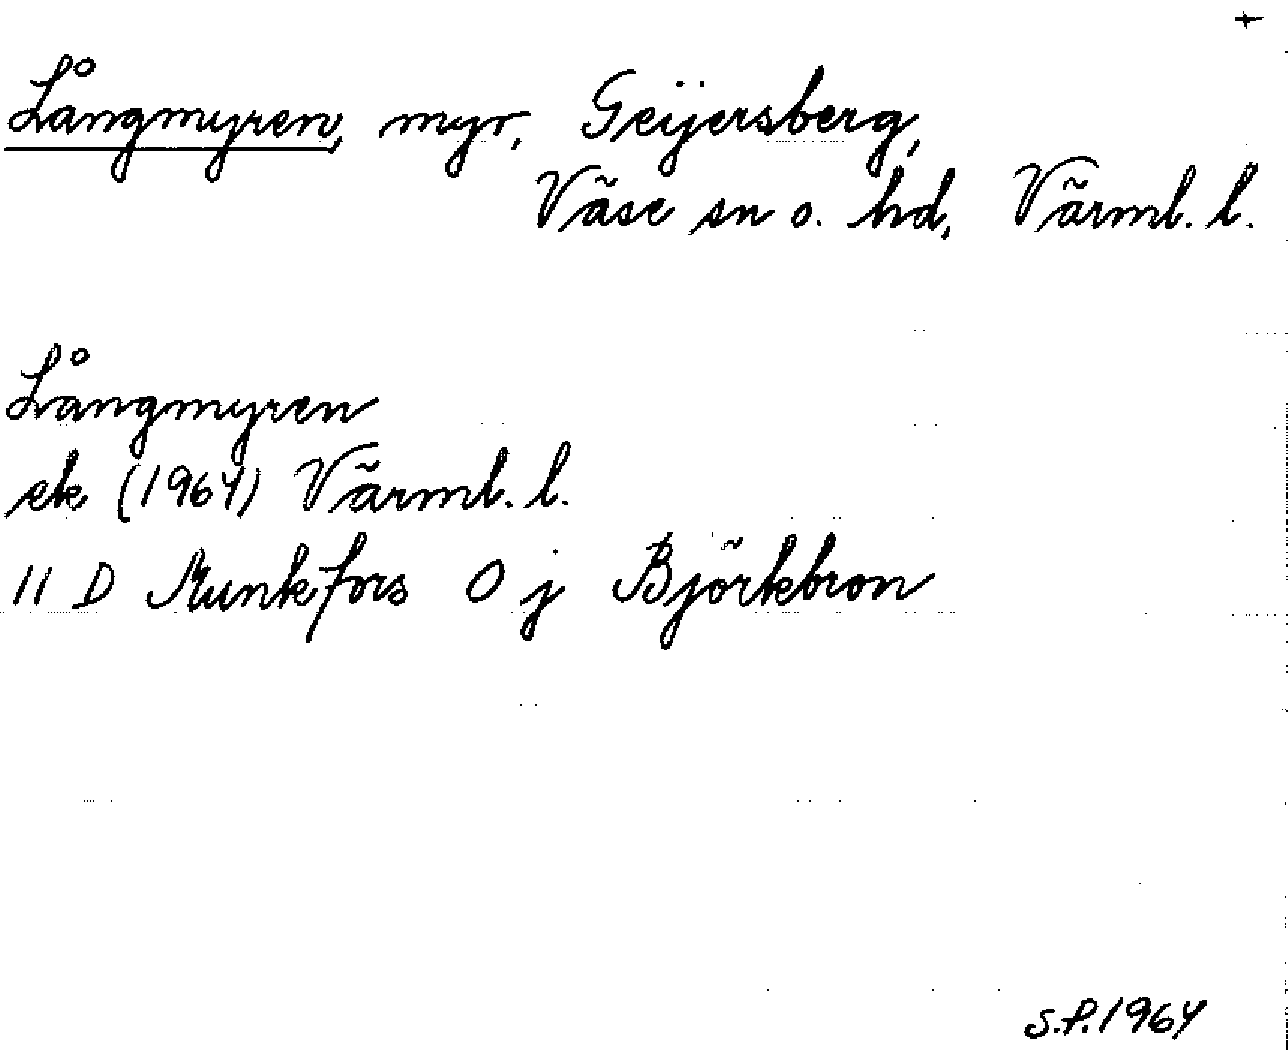 +
Långmyren, myr, Geijersberg,
Väse sn o. hd, Värml. l.
Långmyren
ek (1964) Värml. l.
11 D Munkfors 0 j Björkbron
S.P. 1964